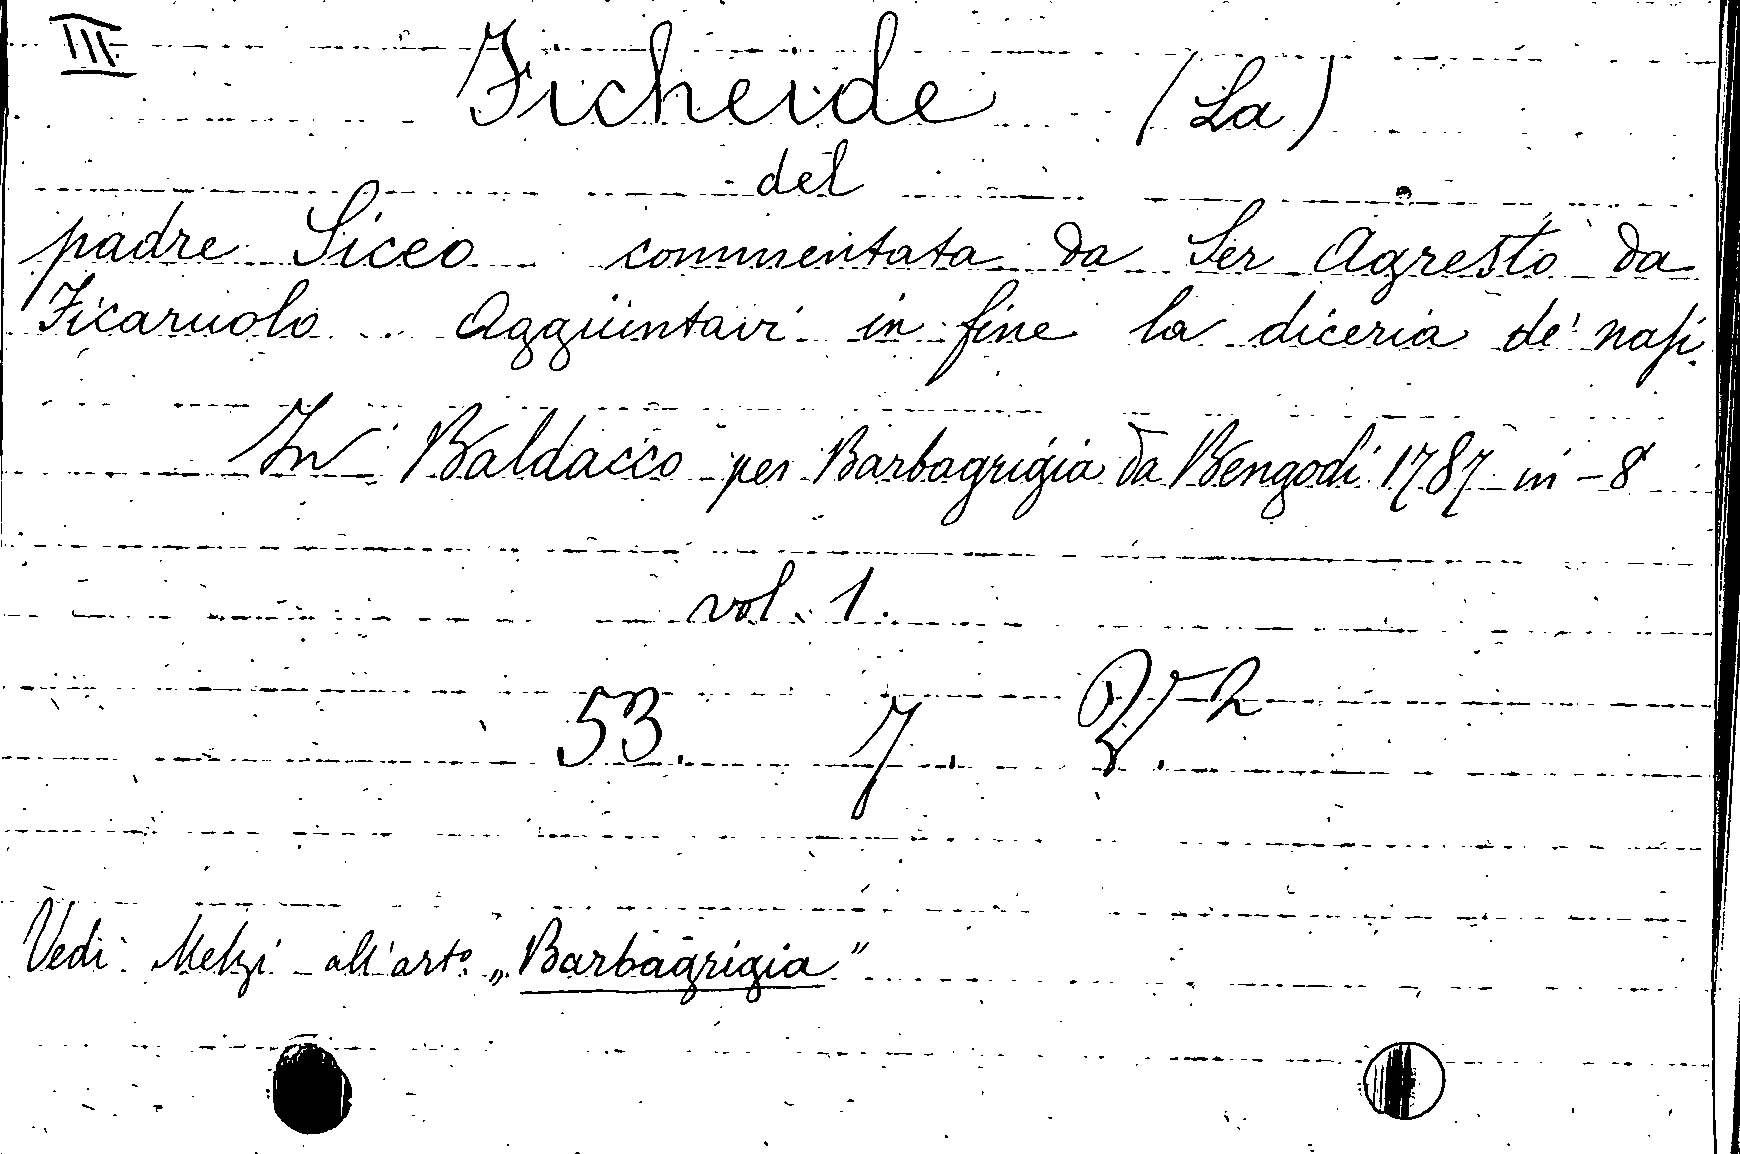 III
Ficheide (La)
del
padre Siceo commentata da Ser Agresto da
Ficaruolo Aggiuntavi in fine la diceria de' nasi.
In Baldacco per Barbagrigia da Bengodi 1787 in-8
vol. 1.
53. 7.
Vedi Melzi all'arto. „Barbagrigia"